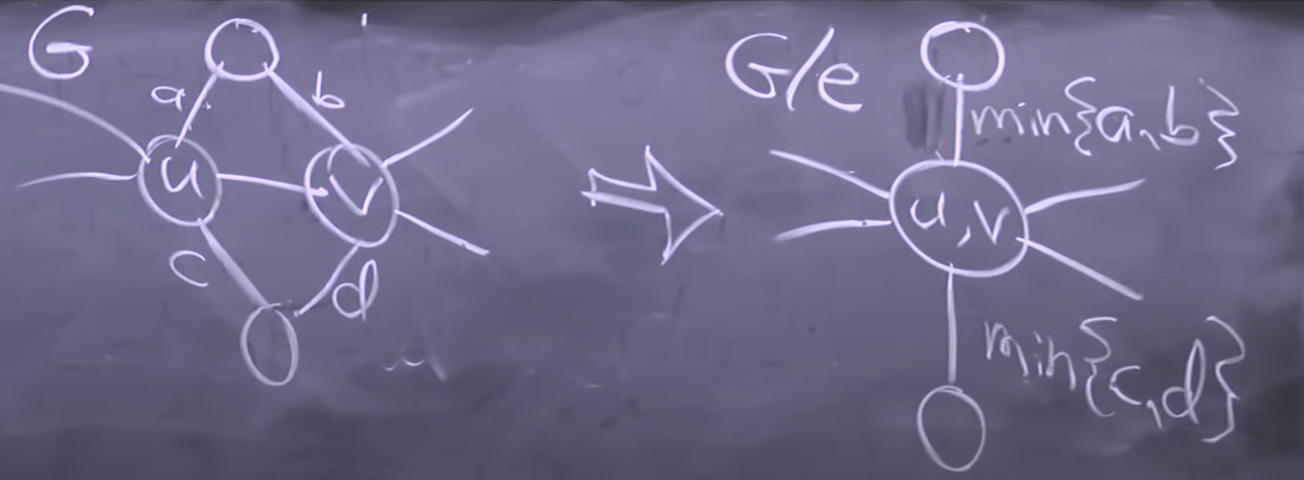 G
a
b
u
v
c
d
G/e
min{a,b}
u,v
min{c,d}